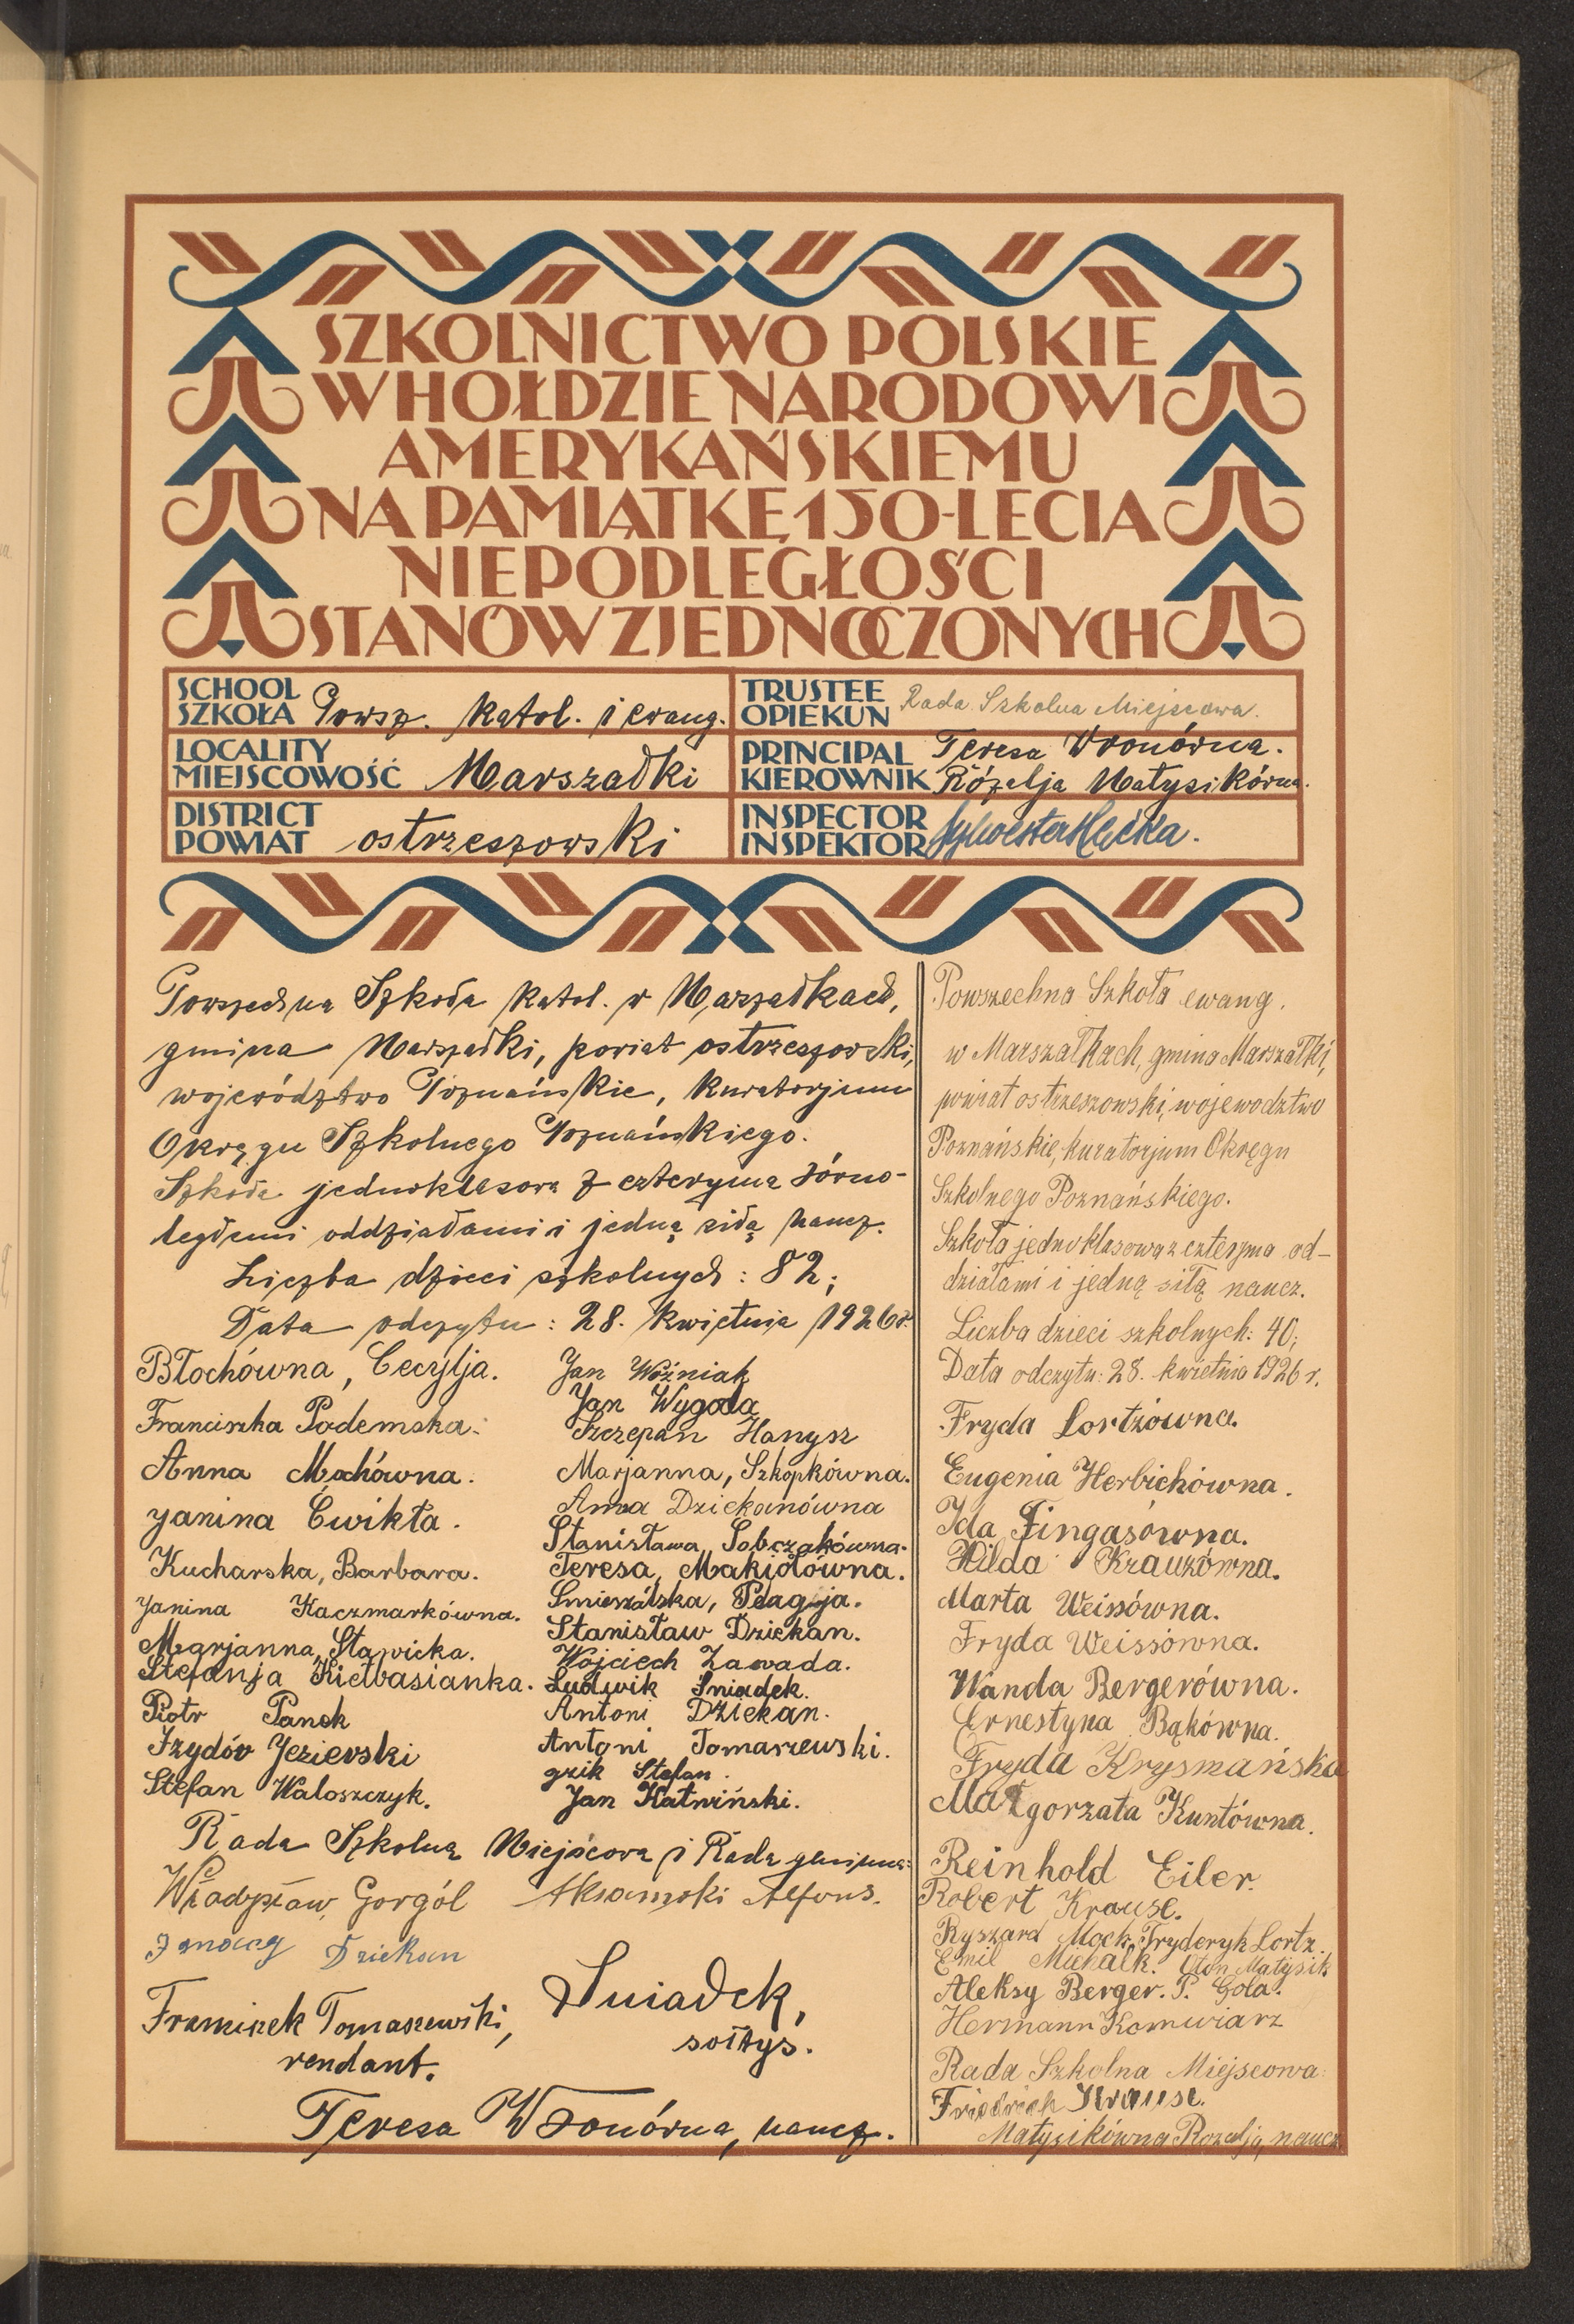 SZKOLNICTWO POLSKIE
W HOŁDZIE NARODOWI
AMERYKAŃSKIEMU
NA PAMIĄTKĘ 150-LECIA
NIEPODLEGŁOŚCI
STANÓW ZJEDNOCZONYCH
SCHOOL
SZKOŁA Powsz. katol. i ewang.
TRUSTEE
OPIEKUN Rada Szkolna Miejscowa.
LOCALITY
MIEJSCOWOŚĆ Marszałki
PRINCIPAL Teresa Wronówna.
KIEROWNIK Rózalja Matysikówna.
DISTRICT
POWIAT ostrzeszowski
INSPECTOR
INSPEKTOR Sylwester
Powszechna Szkoła katol. w Marszałkach,
gmina Marszałki, powiat ostrzeszowski,
województwo Poznańskie, kuratorjum
Okręgu Szkolnego Poznańskiego.
Szkoła jednoklasowa z czteryma równo-
ległemi oddziałami i jedną siłą naucz.
Liczba dzieci szkolnych: 82;
Data odczytu: 28. kwietnia 1926 r.
Błochówna, Cecylja.
Franciszka Podemska.
Anna Mochówna.
Janina Ćwikła.
Kucharska, Barbara.
Janina Kaczmarkówna.
Marjanna, Stawicka.
Stefanja Kiełbasianka.
Piotr Panek
Izydór Jezierski
Stefan Waloszczyk.
Jan Woźniak
Jan Wygoda
Szczepan Hanysz
Marjanna, Szkopkówna.
Anna Dziekanówna
Stanisława Sobczakówna.
Teresa, Makiołówna.
Śmieszalska, Pelagja.
Stanisław Dziekan.
Wojciech Zawada.
Ludwik Śniadek.
Antoni Dziekan.
Antoni Tomaszewski.
Stefan.
Jan Kałwiński.
Rada Szkolna Miejscowa i Rada gminna:
Władysław Gorgól Aksamski Alfons.
Ignacy Dziekan
Franciszek Tomaszewski,
rendant.
Śniadek,
sołtys.
Teresa Wronówna, naucz.
Powszechna Szkoła ewang.
w Marszałkach, gmina Marszałki,
powiat ostrzeszowski, województwo
Poznańskie, kuratorjum Okręgu
Szkolnego Poznańskiego.
Szkoła jednoklasową z czteryma od-
działami i jedną siłą naucz.
Liczba dzieci szkolnych: 40;
Data odczytu: 28. kwietnia 1926 r.
Fryda Lortzówna.
Eugenia Herbichówna.
Ida Fingasówna.
Hilda Krauzówna.
Marta Weissówna.
Fryda Weissówna.
Wanda Bergerówna.
Ernestyna Bąkówna.
Fryda Krysmańska
Małgorzata Kuntówna.
Reinhold Eiler.
Robert Krause.
Ryszard Moch. Fryderyk Lortz.
Emil Michalk. Oton Matysik
Aleksy Berger. P. Gola.
Hermann Kornwiarz
Rada Szkolna Miejscowa:
Friedrich Krause.
Matysikówna Rozalja, naucz.